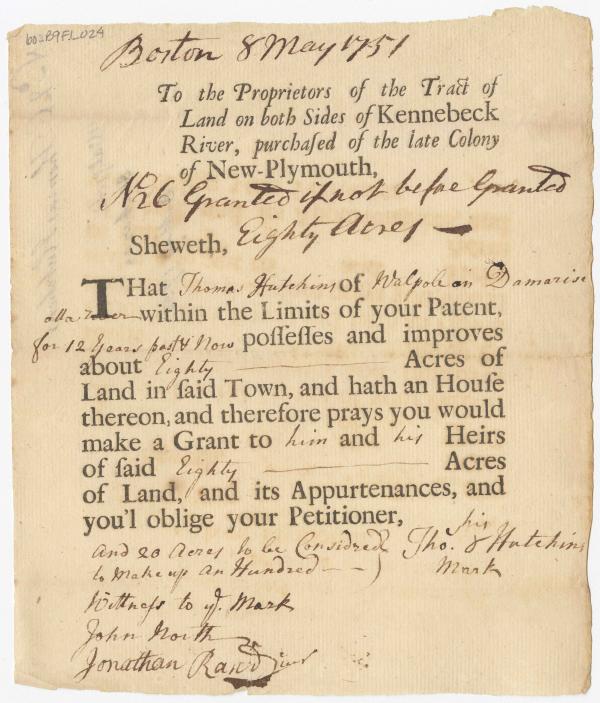 bo2B9F1.024
Boston 8 May 1751
To the Proprietors of the Tract of
Land on both Sides of Kennebeck
River, purchaſed of the late Colony
of New-Plymouth,
No. 26 Granted if not befoe Granted
Sheweth, Eighty Acres
THat Thomas Hutchins of Walpole on Damarisc
otta River within the Limits of your Patent,
for 12 Years past & Now poſſeſſes and improves
about Eighty Acres of
Land in ſaid Town, and hath an Houſe
thereon, and therefore prays you would
make a Grant to him and his Heirs
of ſaid Eighty Acres
of Land, and its Appurtenances, and
you'l oblige your Petitioner,
And 20 Acres to be Considred
to Make up An Hundred
his
Tho. 8 Hutchins
Mark
Wittness to ye. Mark
John North
Jonathan